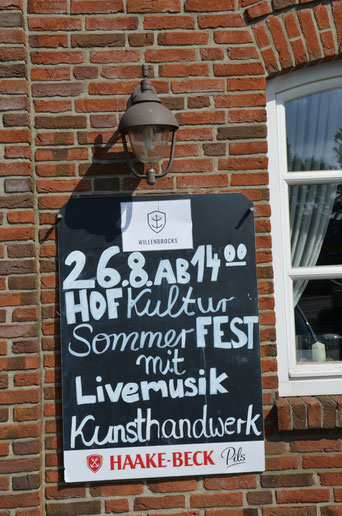 WILLENBROCKS
26.8. AB 14 00
HOF Kultur
Sommer FEST
mit
Livemusik
Kunsthandwerk
HAAKE-BECK Pils